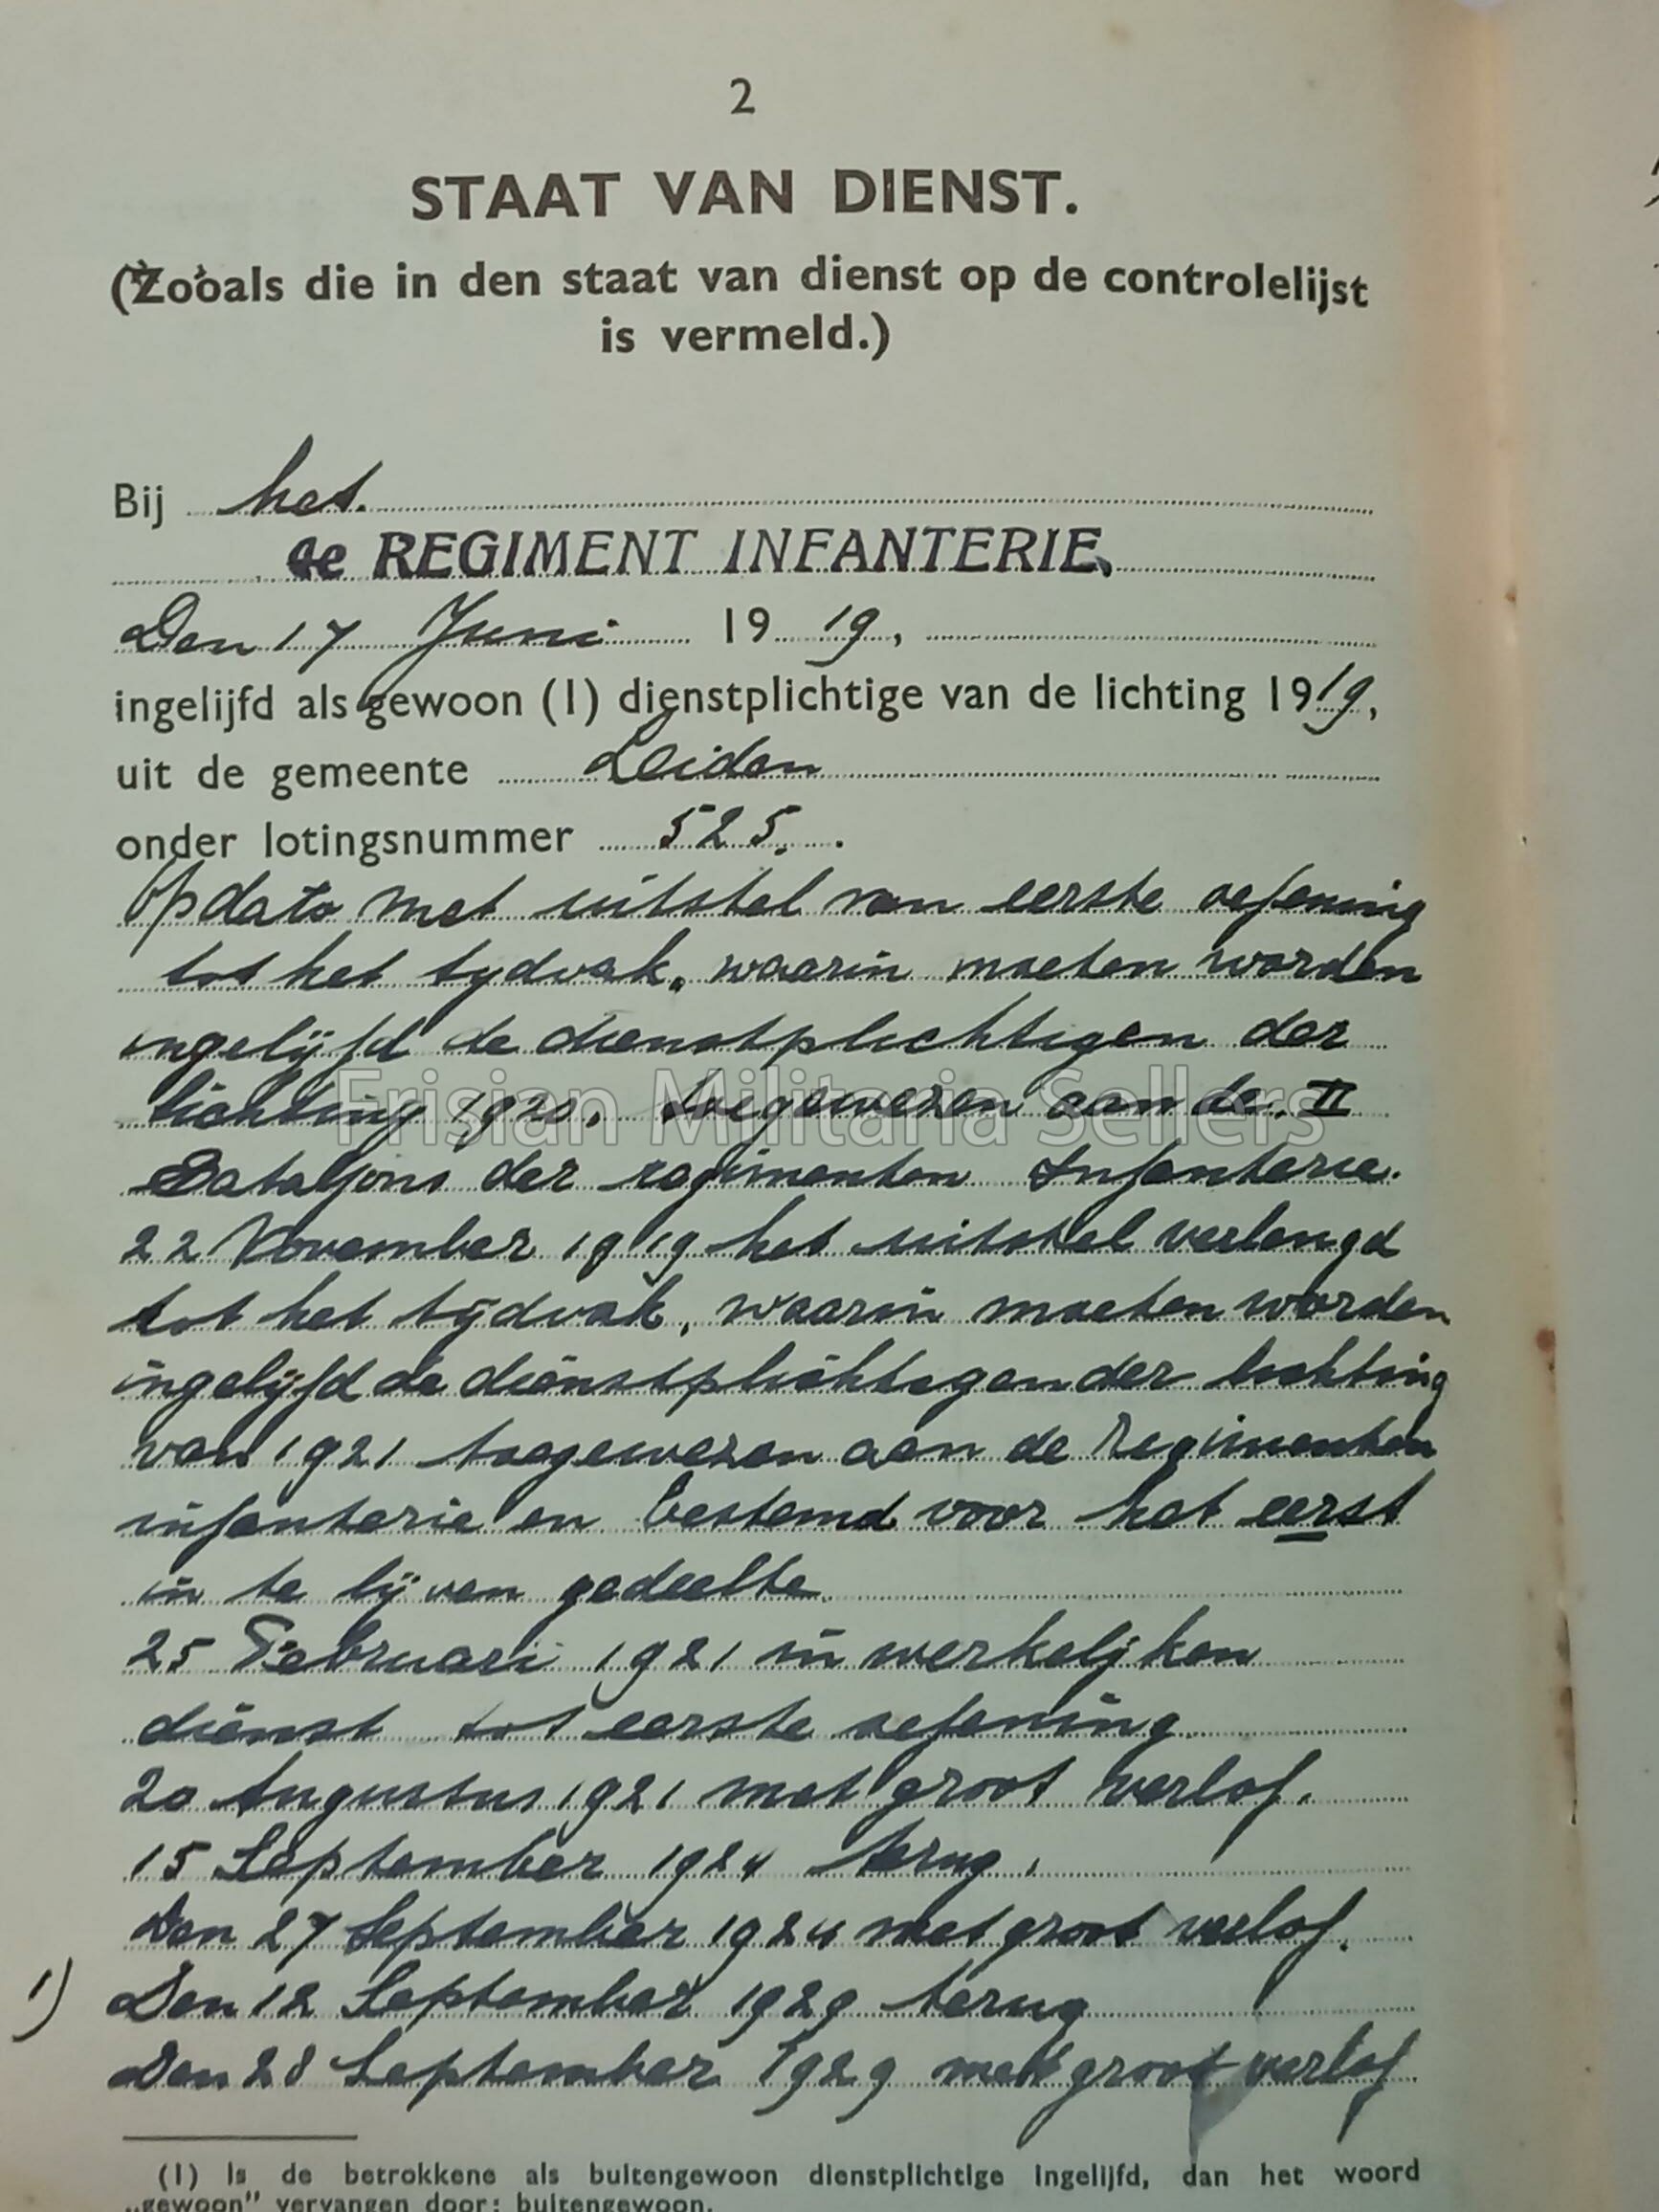 2
STAAT VAN DIENST.
(Zooals die in den staat van dienst op de controlelijst
is vermeld.)
Bij het
4e REGIMENT INFANTERIE,
Den 17 Juni 1919,
ingelijfd als gewoon (1) dienstplichtige van de lichting 1919,
uit de gemeente Leiden
onder lotingsnummer 525.
Op dato met uitstel van eerste oefening
tot het tydvak, waarin moeten worden
ingelijfd de dienstplichtigen der
lichting 1920, toegewezen aan de II
Bataljons der regimenten Infanterie.
22 November 1919 het uitstel verlengd
tot het tijdvak, waarin moeten worden
ingelijfd de dienstplichtigen der lichting
van 1921 toegewezen aan de Regimenten
infanterie en bestemd voor het eerst
in te lijven gedeelte.
25 Februari 1921 in werkelijken
dienst tot eerste oefening.
20 Augustus 1921 met groot verlof.
15 September 1924 terug.
Den 27 September 1924 met groot verlof.
1) Den 12 September 1929 terug
Den 28 September 1929 met groot verlof
(1) Is de betrokkene als buitengewoon dienstplichtige ingelijfd, dan het woord
„gewoon" vervangen door: buitengewoon.
Frisian Militaria Sellers